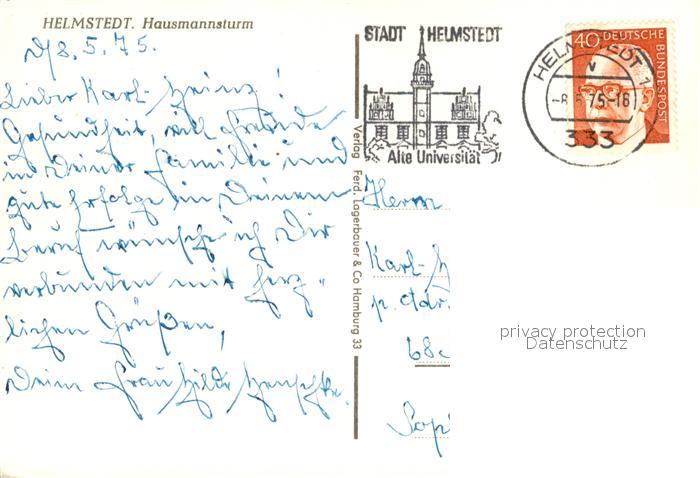 HELMSTEDT. Hausmannsturm
8.5.75.
Lieber Karl-Heinz!
Gesundheit, viel Freude
in Deiner Familie und
gute Erfolge in Deinem
Beruf wünsche ich Dir
verbunden mit herz-
lichen Grüßen,
Deine Frau Hilde
Verlag Ferd. Lagerbauer & Co Hamburg 33
STADT HELMSTEDT
Alte Universität
HELMSTEDT 1
v
-8.5.75-16
333
40 DEUTSCHE
BUNDESPOST
Herrn
Karl-H
p. Adr.
68
Sop
privacy protection
Datenschutz